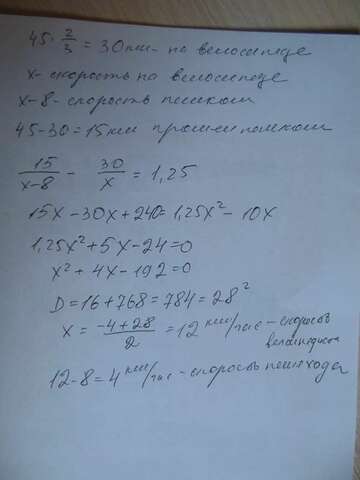 45·2/3 = 30км - на велосипеде
x - скорость на велосипеде
x-8 - скорость пешком
45-30=15км прошли пешком
15/(x-8) - 30/x = 1,25
15x-30x+240=1,25x²-10x
1,25x²+5x-24=0
x²+4x-192=0
D=16+768=784=28²
x = (-4+28)/2 = 12 км/час - скорость велосипедиста
12-8=4 км/час - скорость пешехода